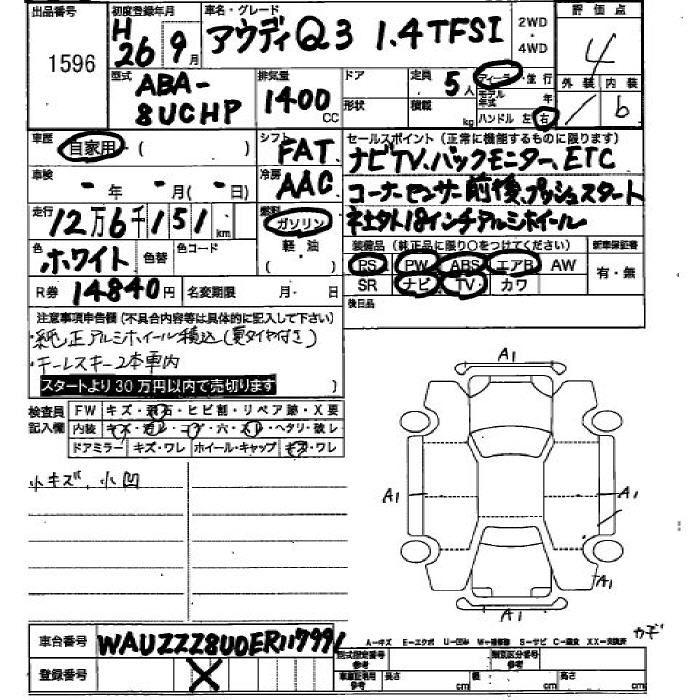 出品番号
1596
初度登録年月
H 26 9月
車名・グレード
アウディ Q3 1.4TFSI
2WD
・
4WD
評価点
4
型式
ABA-
8UCHP
排気量
1400
CC
ドア
形状
定員
5人
積載
kg
ディーラー・並行
モデル年式 年
ハンドル 左 右
外装 内装
b
車歴
自家用・( )
シフト
FAT
車検
- 年 - 月(- 日)
冷房
AAC
走行
12万6千151km
燃料
ガソリン
軽油
( )
色
ホワイト
色替
色コード
R券 14840円
名変期限 月・ 日
セールスポイント (正常に機能するものに限ります)
ナビTV、バックモニター、ETC
コーナーセンサー前後、プッシュスタート
社外18インチアルミホイール
装備品(純正品に限り○をつけてください)
新車保証書
PS PW ABS エアB AW
有・無
SR ナビ TV カワ
後日品
注意事項申告欄 (不具合内容等は具体的に記入して下さい)
・純正アルミホイール積込(夏タイヤ付き)
・キーレスキー2本車内
スタートより30万円以内で売切ります
)
検査員
記入欄
FW キズ・飛石・ヒビ割・リペア跡・X要
内装 キズ・ヨゴレ・コゲ・穴・スレ・ヘタリ・破レ
ドアミラー キズ・ワレ ホイール・キャップ キズ・ワレ
小キズ、小凹
A1
A1
A1
A1
A1
カギ
車台番号
WAUZZZ8U0ER117991
A=キズ E=エクボ U=凹み W=補修跡 S=サビ C=腐食 XX=交換済
登録番号
X
型式指定番号
参考
類別区分番号
参考
車庫証明用
参考
長さ cm
幅 cm
高さ cm